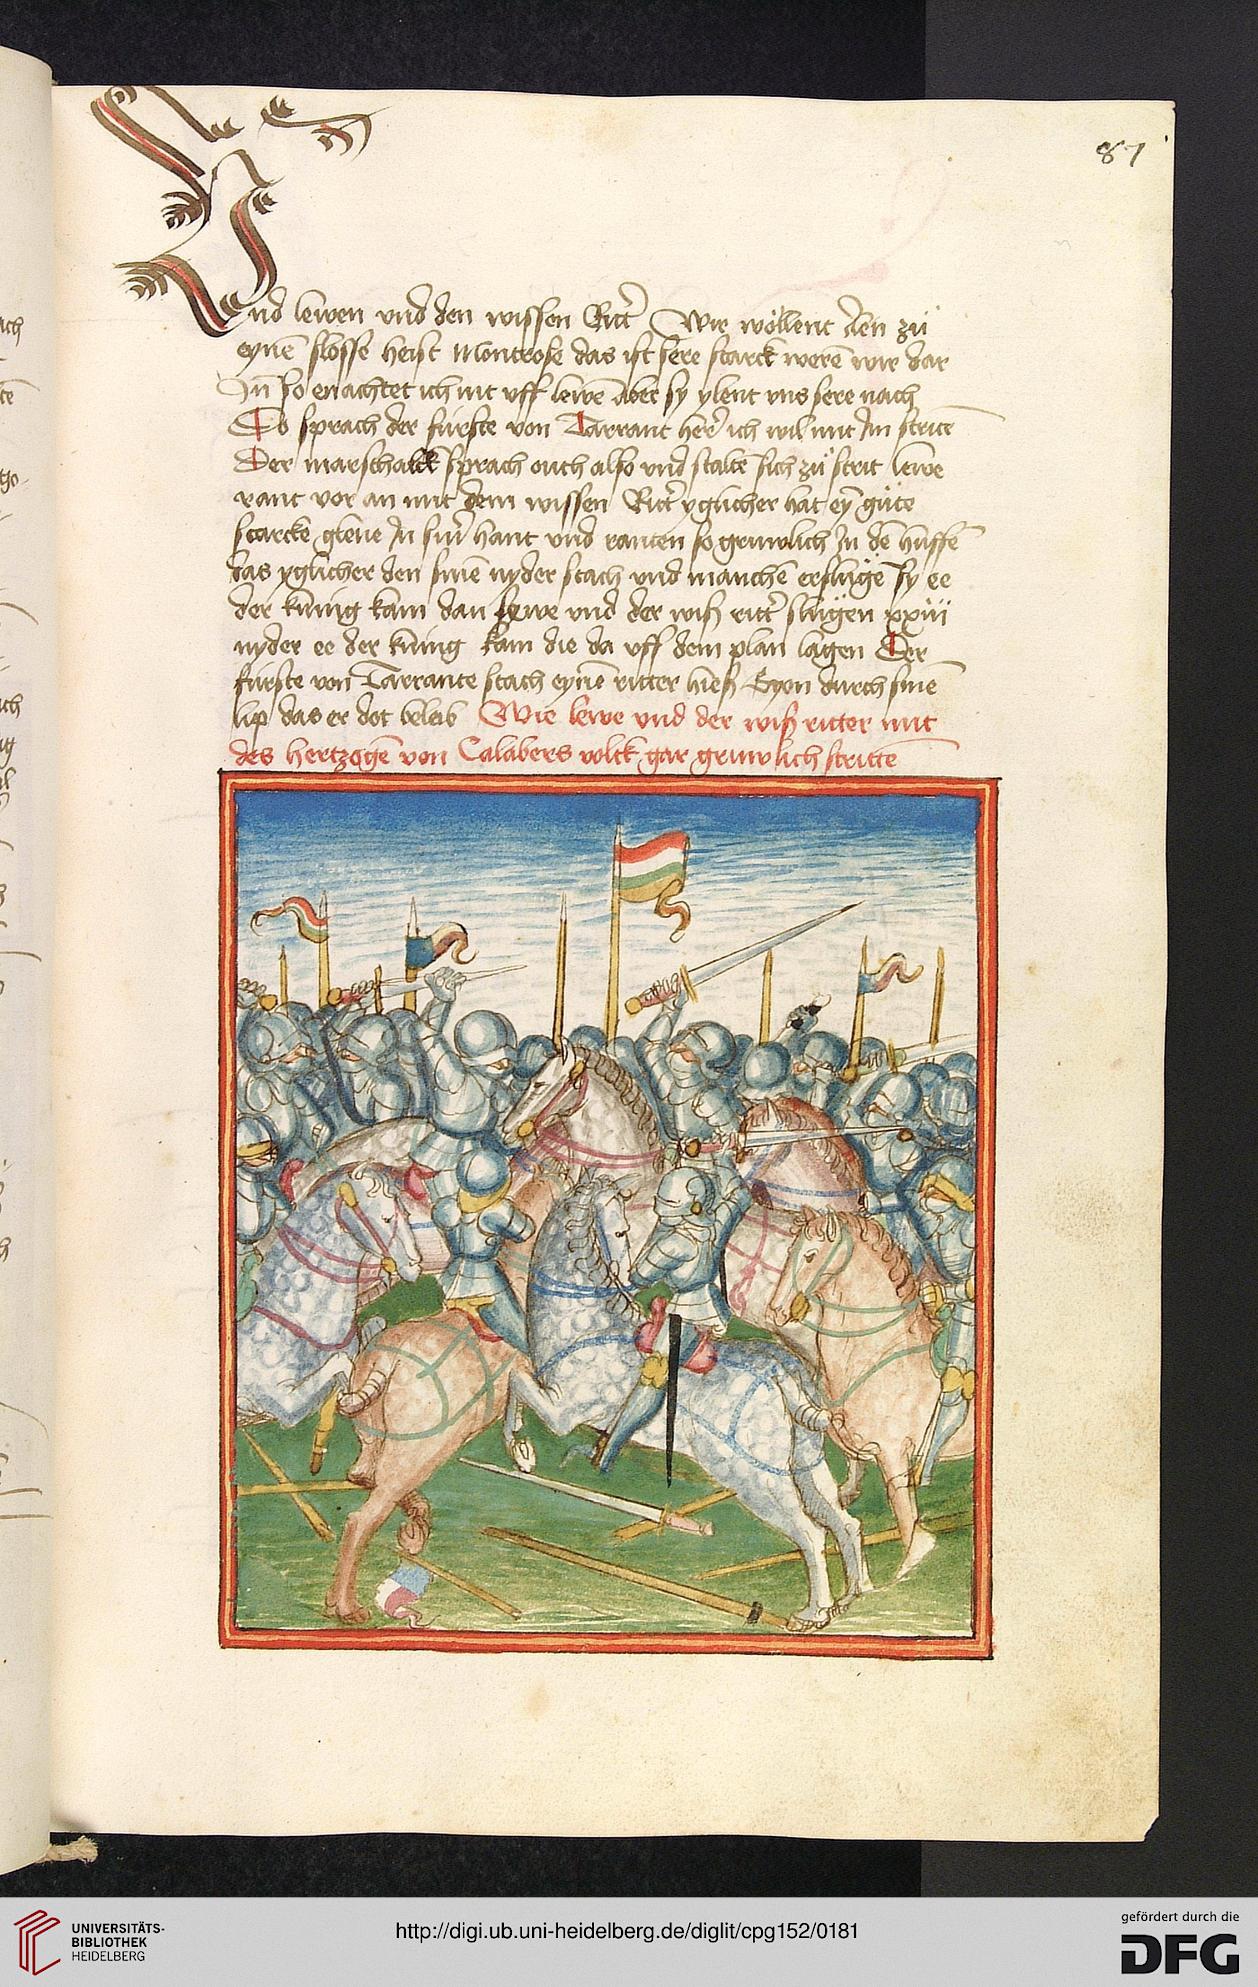 87
Und lewen und den wissen Ritt̄ Wie wöllent den zů
eynē slosse heist Montrose das ist sere starck werē wir dar
In so enachtet ich nit uff lewē aber sy ylent uns sere nach
Do sprach der fürste von Tarrant herr̄ ich wil mit in stritē
Der marschalck sprach ouch also und staltē sich zů strit lewe
rant vor an mit dem wissen Ritt̄ yglicher hat eȳ gůte
starcke glene In sinr̄ hant und ranten so gruwlich In dē huffē
das yglicher den sinē nyder stach und manchē erslůgē sy ee
der kůnig kam dan lewe und der wiß ritt̄ slůgen xxiii
nyder ee der kůnig kam die da uff dem plan lagen Der
fürste von Tarrante stach eynē ritter hieß Gyon durch sinē
lip das er dot beleib Wie lewe und der wiß ritter mit
des hertzogē von Calabers volck gar gruwlich strittē
UNIVERSITÄTS-
BIBLIOTHEK
HEIDELBERG
http://digi.ub.uni-heidelberg.de/diglit/cpg152/0181
gefördert durch die
DFG